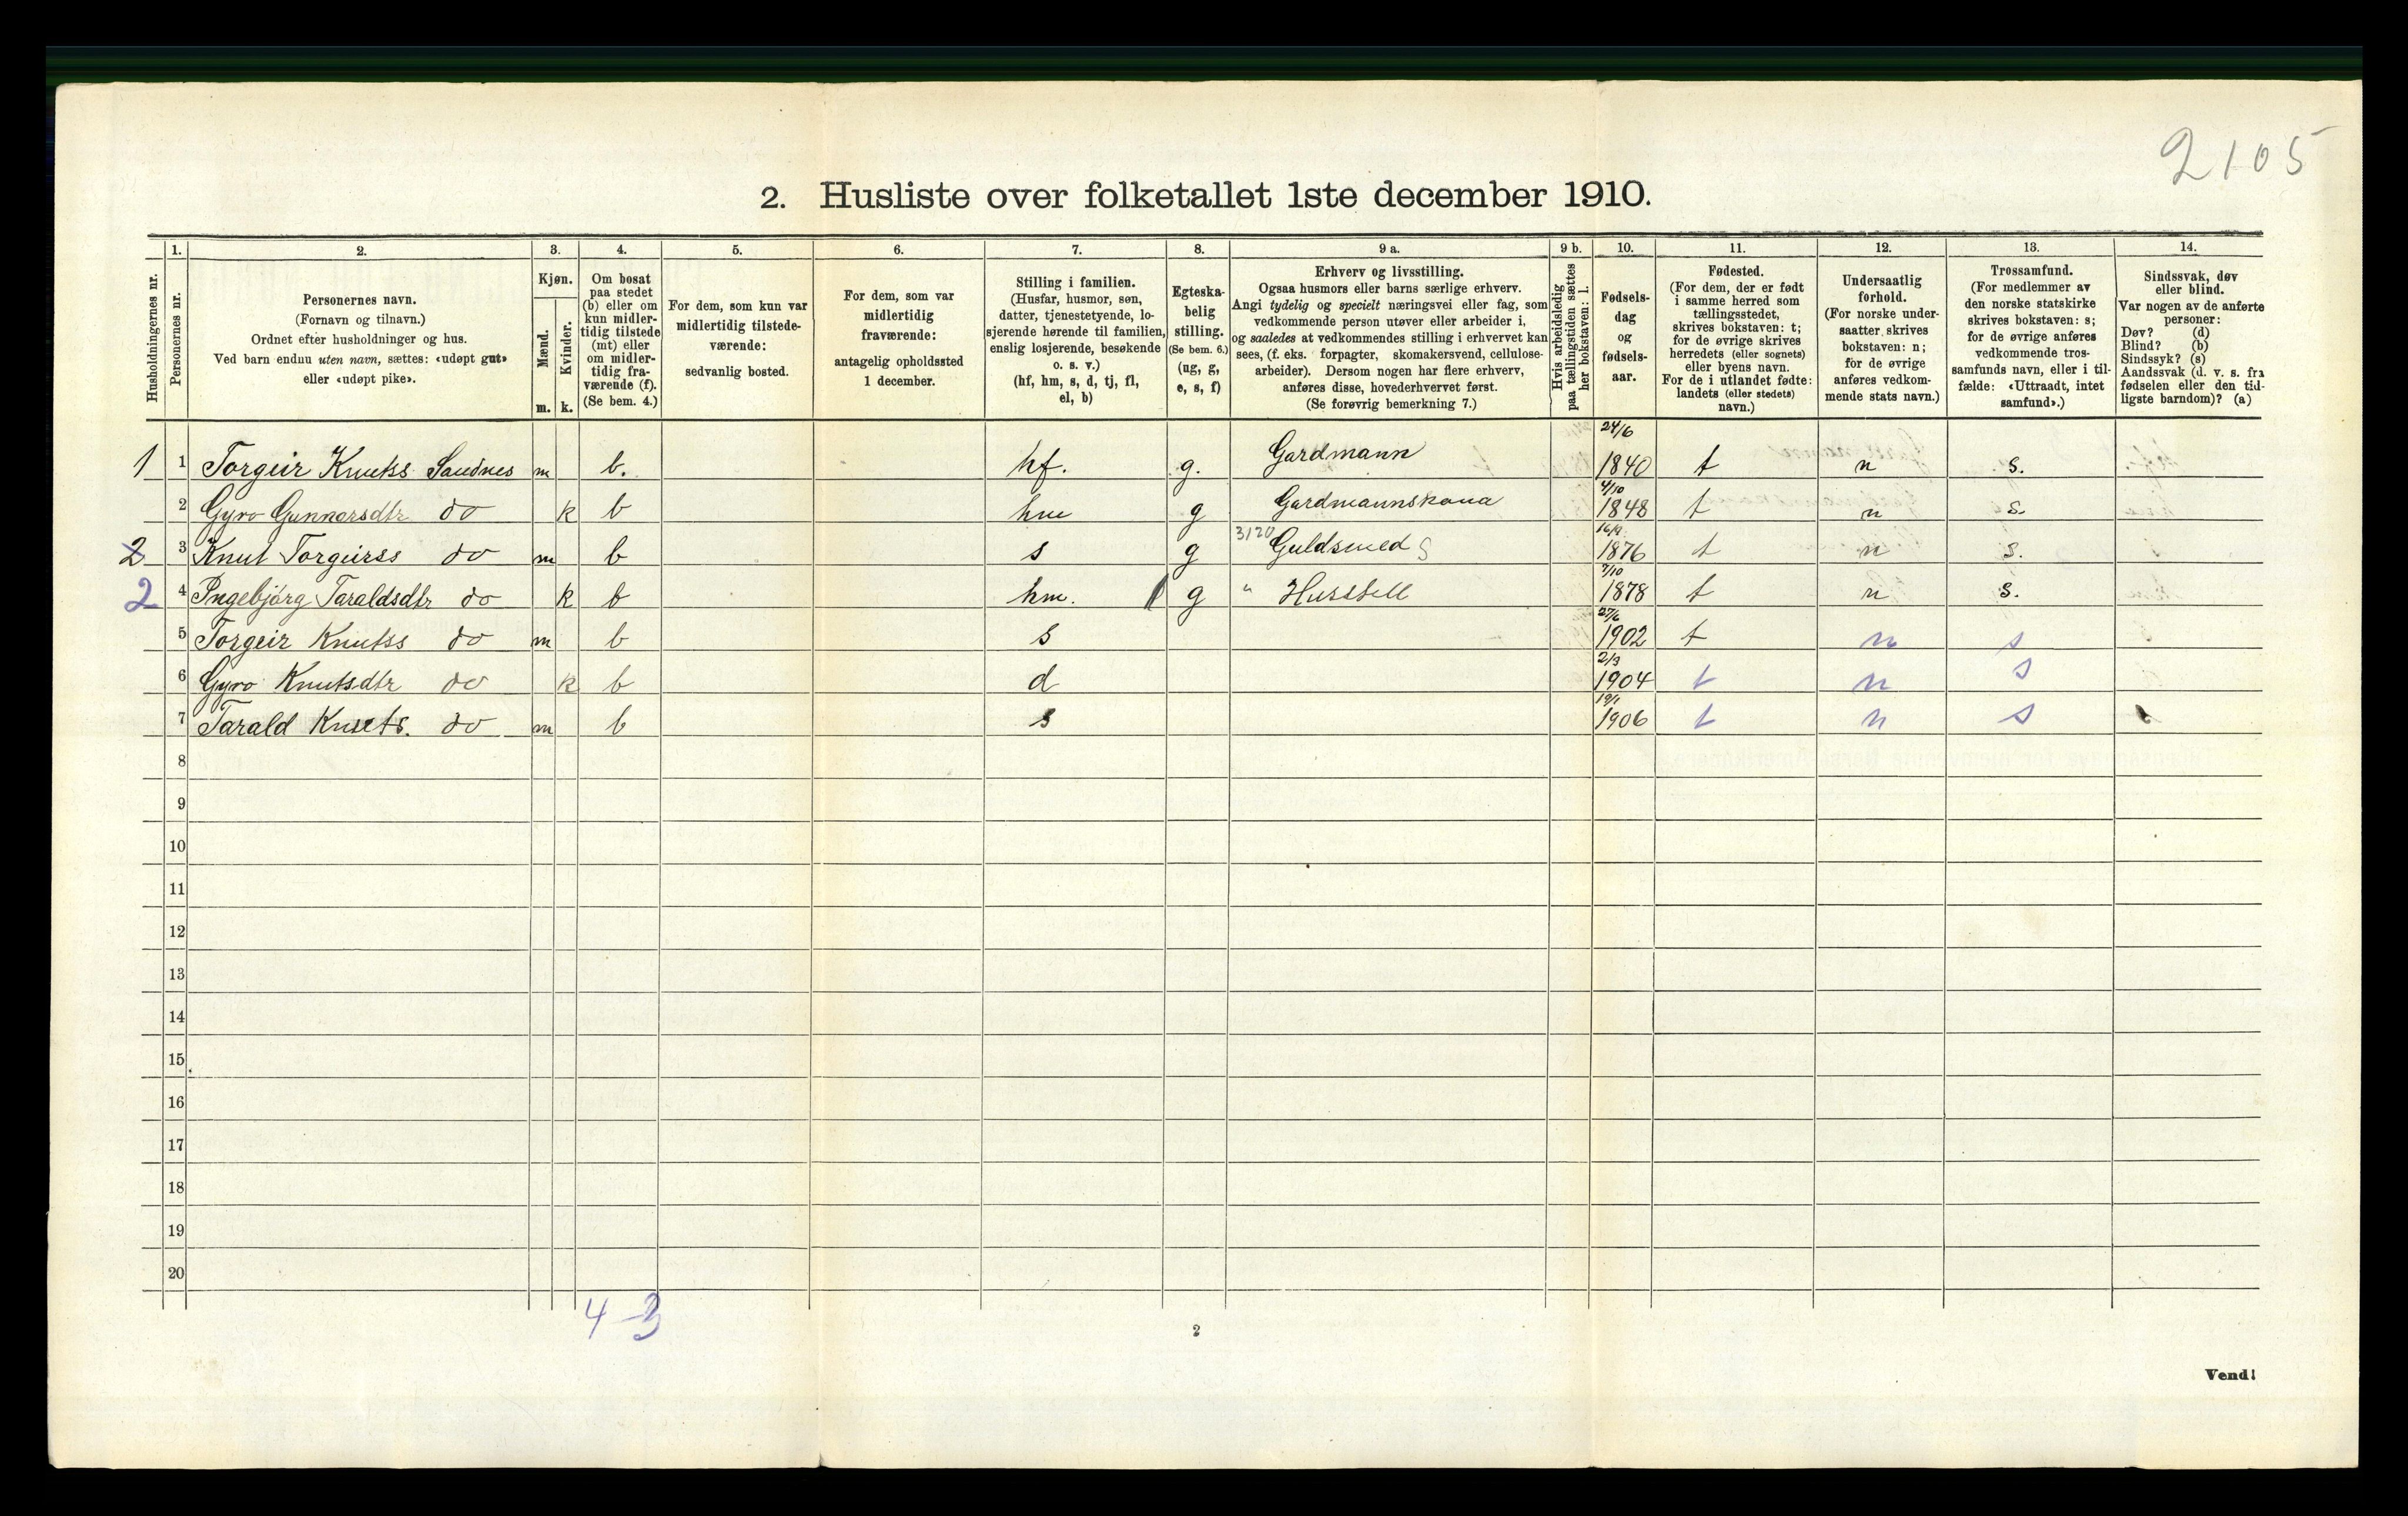 2105
2. Husliste over folketallet 1ste december 1910.
Husholdningernes nr.
1.
Personernes nr.
2.
Personernes navn.
(Fornavn og tilnavn.)
Ordnet efter husholdninger og hus.
Ved barn endnu uten navn, sættes: «udøpt gut»
eller «udøpt pike».
3.
Kjøn.
Mænd.
Kvinder.
m. k.
4.
Om bosat
paa stedet
(b) eller om
kun midler-
tidig tilstede
(mt) eller
om midler-
tidig fra-
værende (f).
(Se bem. 4.)
5.
For dem, som kun var
midlertidig tilstede-
værende:
sedvanlig bosted.
6.
For dem, som var
midlertidig
fraværende:
antagelig opholdssted
1 december.
7.
Stilling i familien.
(Husfar, husmor, søn,
datter, tjenestetyende, lo-
sjerende hørende til familien,
enslig losjerende, besøkende
o. s. v.)
(hf, hm, s, d, tj, fl,
el, b)
8.
Egteska-
belig
stilling.
(Se bem. 6.)
(ug, g,
e, s, f)
9 a.
Erhverv og livsstilling.
Ogsaa husmors eller barns særlige erhverv.
Angi tydelig og specielt næringsvei eller fag, som
vedkommende person utøver eller arbeider i,
og saaledes at vedkommendes stilling i erhvervet kan
sees, (f. eks. forpagter, skomakersvend, cellulose-
arbeider). Dersom nogen har flere erhverv,
anføres disse, hovederhvervet først.
(Se forøvrig bemerkning 7.)
9 b.
Hvis arbeidsledig
paa tællingstiden sættes
her bokstaven: l.
10.
Fødsels-
dag
og
fødsels-
aar.
11.
Fødested.
(For dem, der er født
i samme herred som
tællingsstedet,
skrives bokstaven: t;
for de øvrige skrives
herredets (eller sognets)
eller byens navn.
For de i utlandet fødte:
landets (eller stedets)
navn.)
12.
Undersaatlig
forhold.
(For norske under-
saatter skrives
bokstaven: n;
for de øvrige
anføres vedkom-
mende stats navn.)
13.
Trossamfund.
(For medlemmer av
den norske statskirke
skrives bokstaven: s;
for de øvrige anføres
vedkommende tros-
samfunds navn, eller i til-
fælde: «Uttraadt, intet
samfund».)
14.
Sindssvak, døv
eller blind.
Var nogen av de anførte
personer:
Døv? (d)
Blind? (b)
Sindssyk? (s)
Aandssvak (d. v. s. fra
fødselen eller den tid-
ligste barndom)? (a)
1 1 Torgeir Knutss Sandnes m b. hf. g. Gardmann 24/6 1840 t n s.
2 Gyro Gunnarsdtr do k b hm g Gardmannskona 4/10 1848 t n s.
2 3 Knut Torgeirss do m b s g 3120 Guldsmed S 1876 t n s.
2 4 Ingebjörg Taraldsdtr do k b hm. g " Husstell 7/10 1878 t n s.
5 Torgeir Knutss do m b s 27/6 1902 t n s
6 Gyro Knutsdtr do k b d 2/3 1904 t n s
7 Tarald Knuts. do m b s 19/1 1906 t n s
8
9
10
11
12
13
14
15
16
17
18
19
20
4 3
2
Vend!